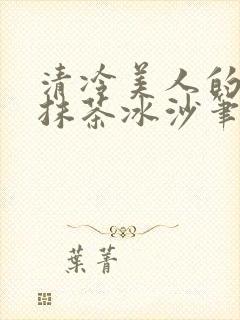 清冷美人的
抹茶冰沙筆
葉菁